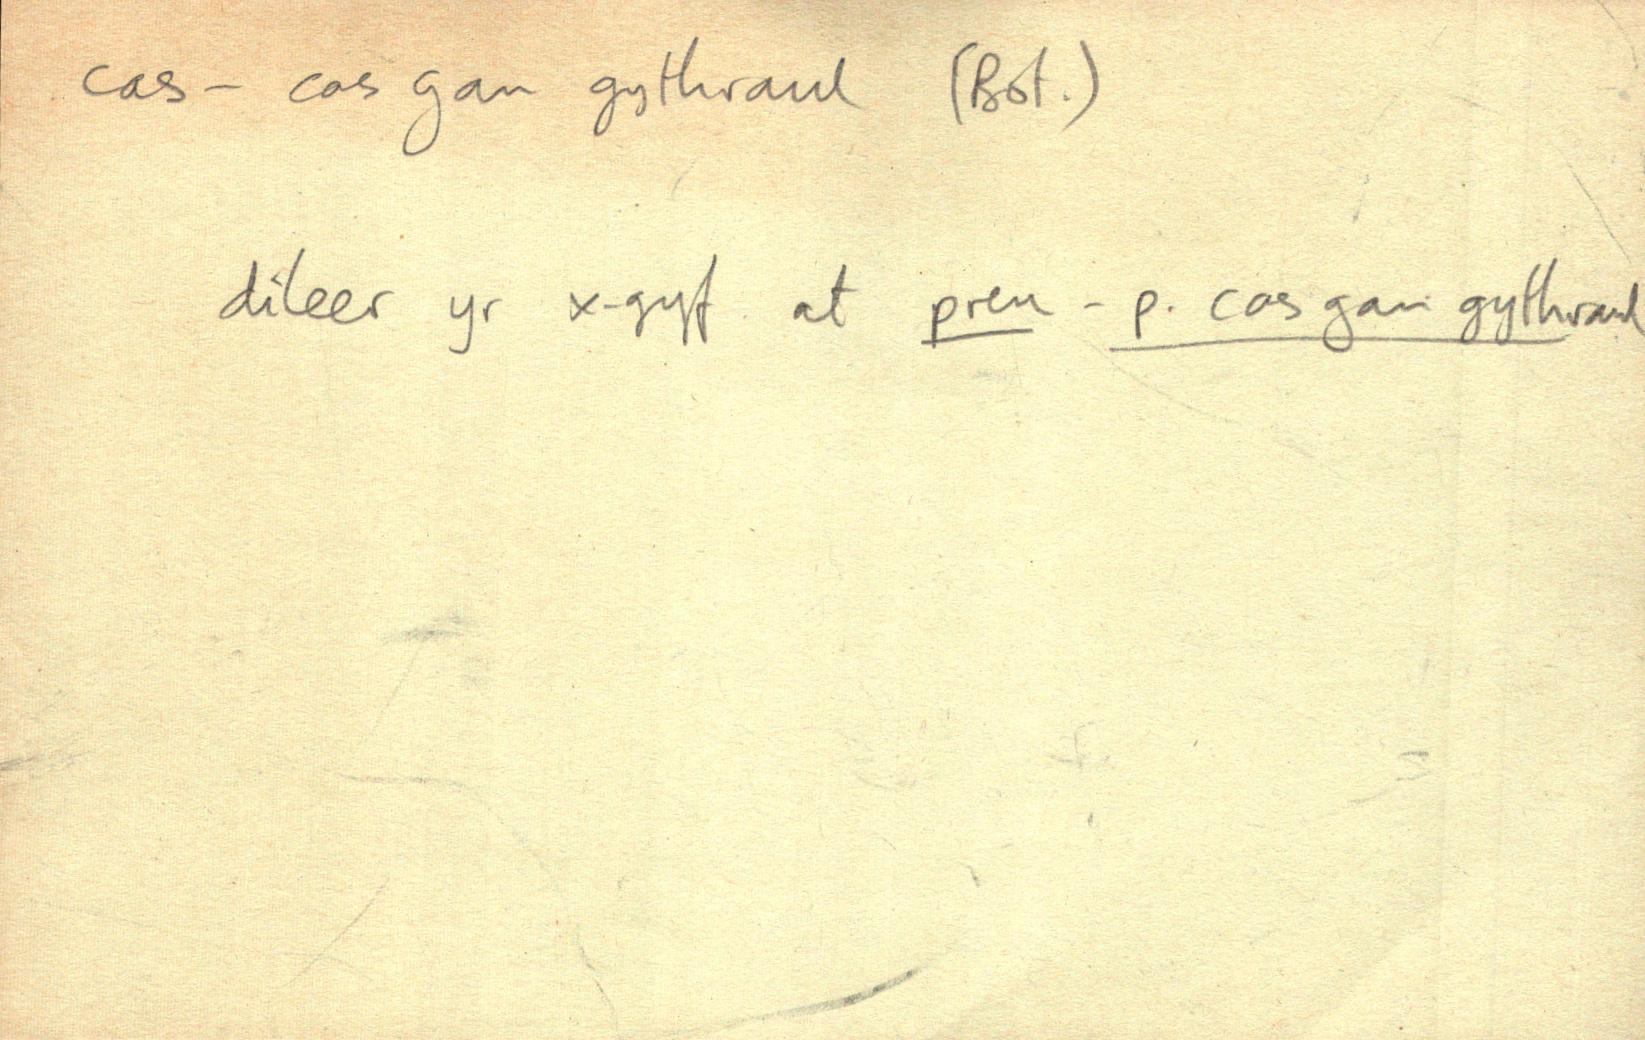 cas - cas gan gythraul (Bot.)
dileer yr x-gyf. at pren - p. cas gan gythraul